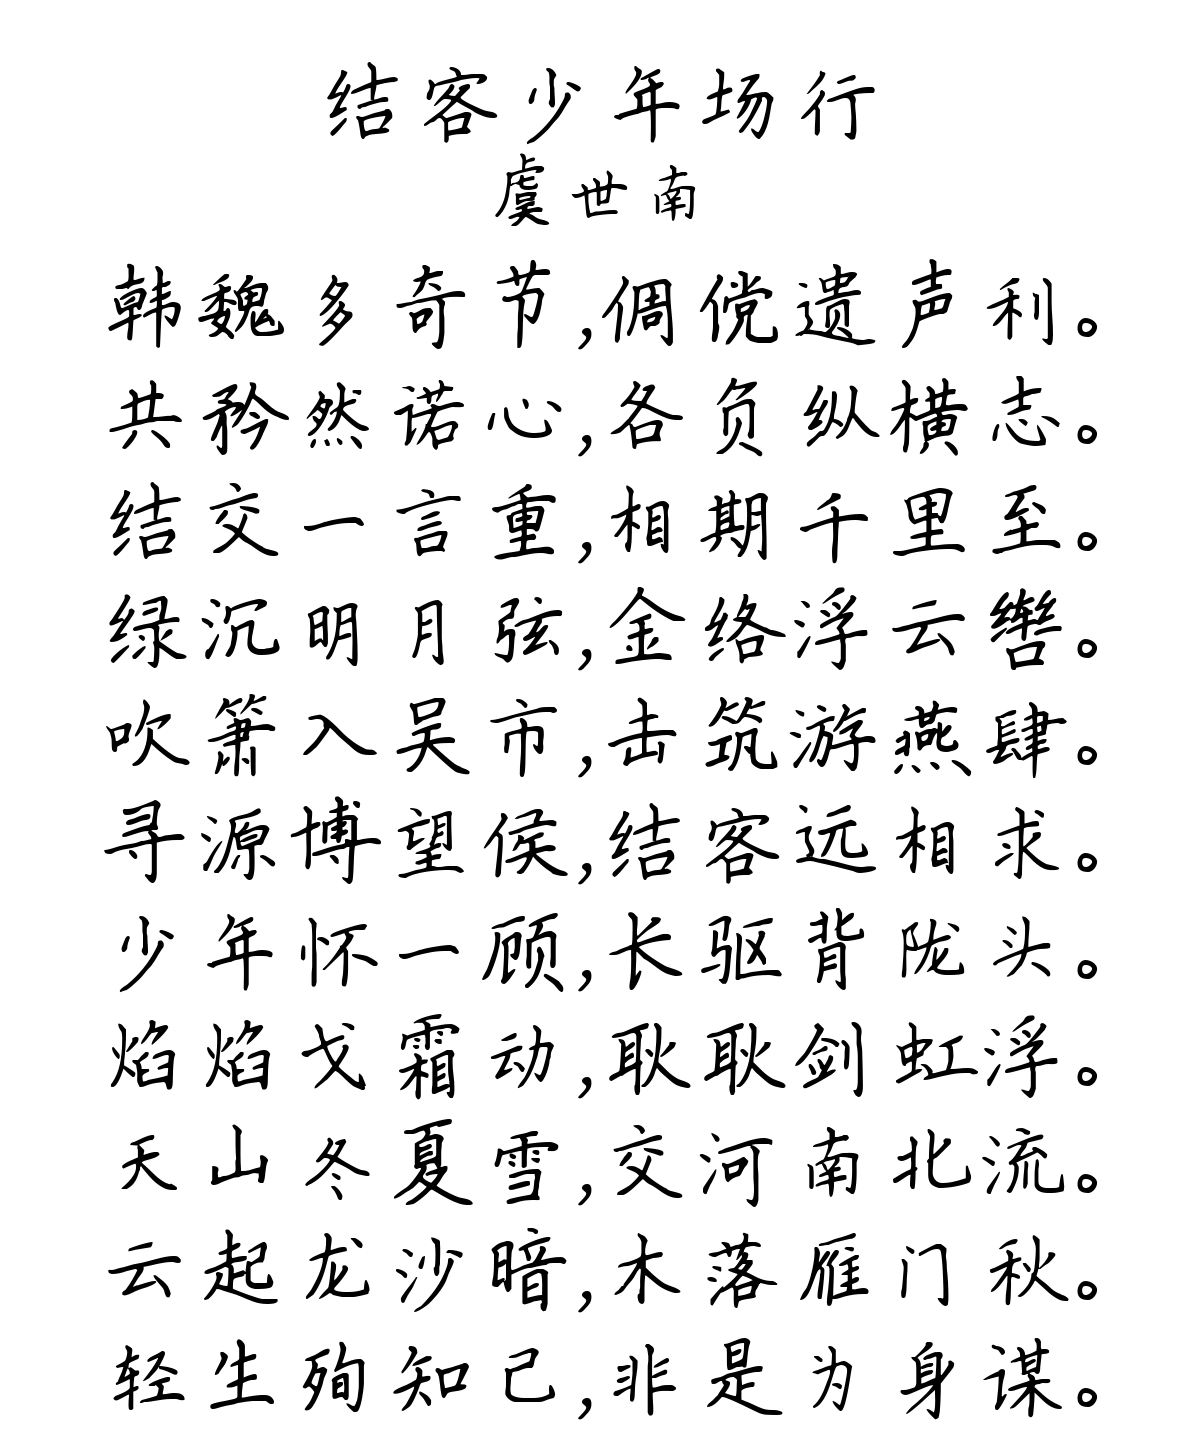 结客少年场行
虞世南
韩魏多奇节,倜傥遗声利。
共矜然诺心,各负纵横志。
结交一言重,相期千里至。
绿沉明月弦,金络浮云辔。
吹箫入吴市,击筑游燕肆。
寻源博望侯,结客远相求。
少年怀一顾,长驱背陇头。
焰焰戈霜动,耿耿剑虹浮。
天山冬夏雪,交河南北流。
云起龙沙暗,木落雁门秋。
轻生殉知己,非是为身谋。